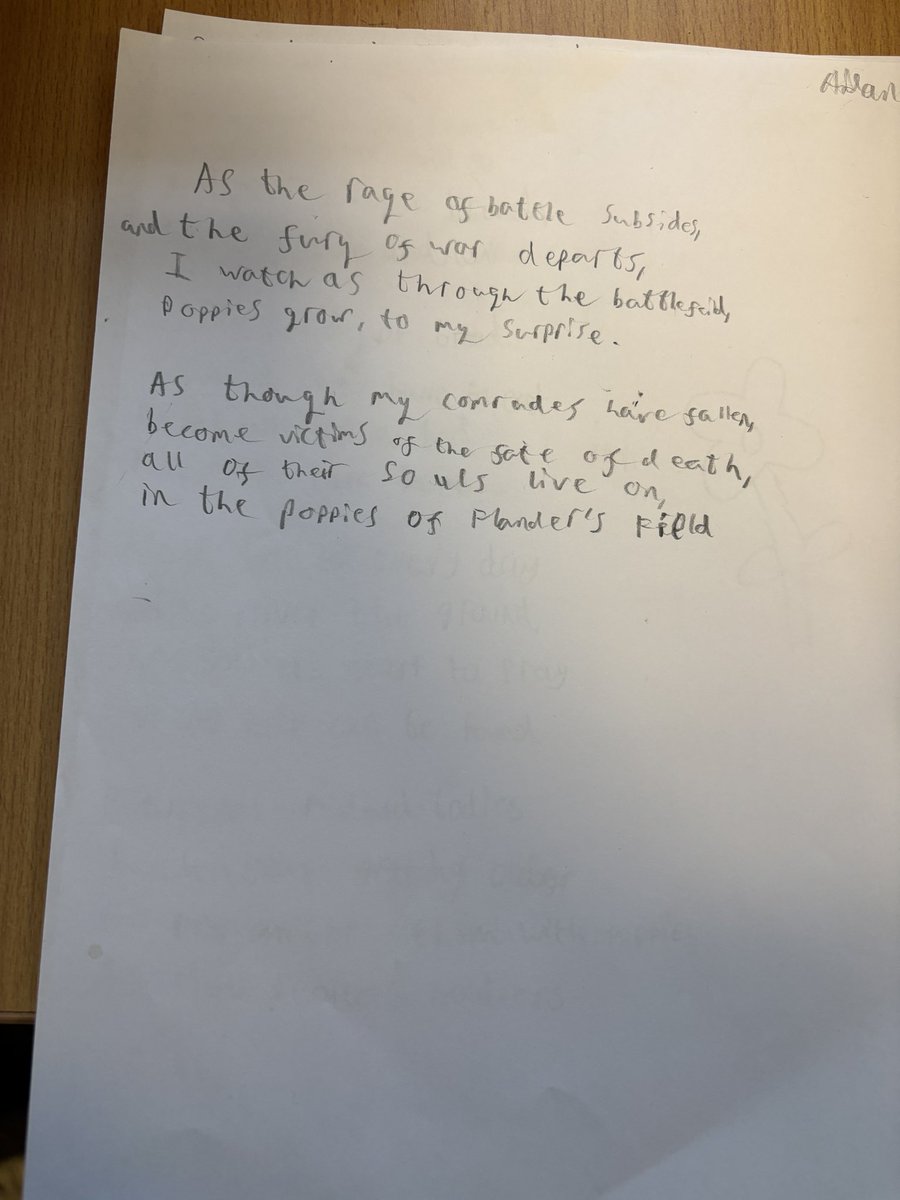 As the rage of battle subsides,
and the fury of war departs,
I watch as through the battlefeild,
Poppies grow, to my surprise.
As though my comrades have fallen,
become victims of the fate of death,
all of their souls live on,
in the poppies of Flander's Field